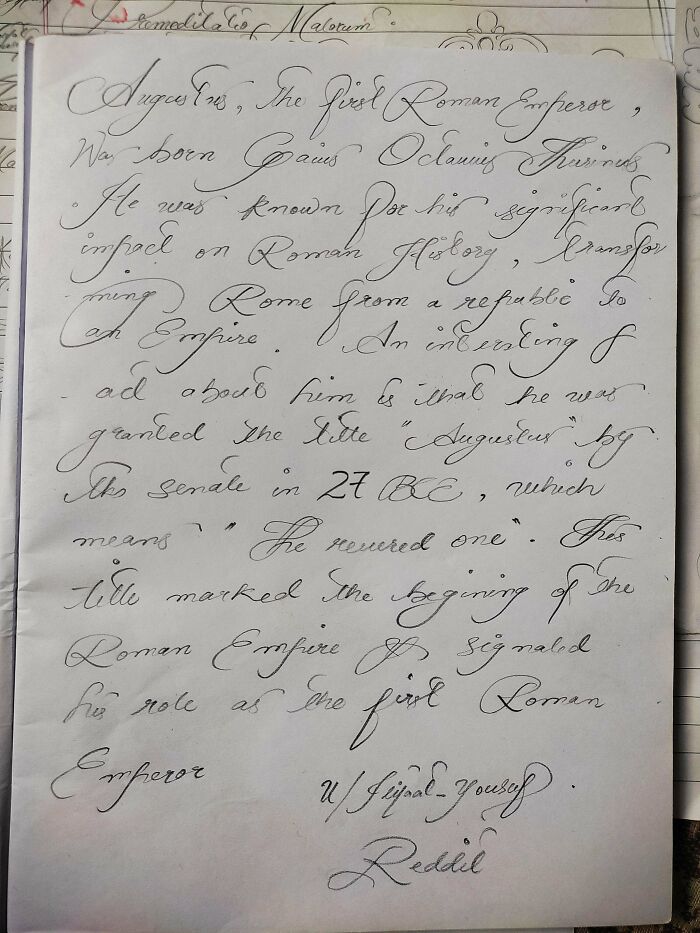 Premeditatio Malorum.
Augustus, the first Roman Emperor,
Was born Gaius Octavius Thurinus
. He was known for his significant
impact on Roman History, transfor
ming Rome from a republic to
an Empire. An intersting f
act about him is that he was
granted the title "Augustus" by
the senate in 27 BCE, which
means "The revered one". This
title marked the begining of the
Roman Empire & signaled
his role as the first Roman
Emperor
u/
Reddit